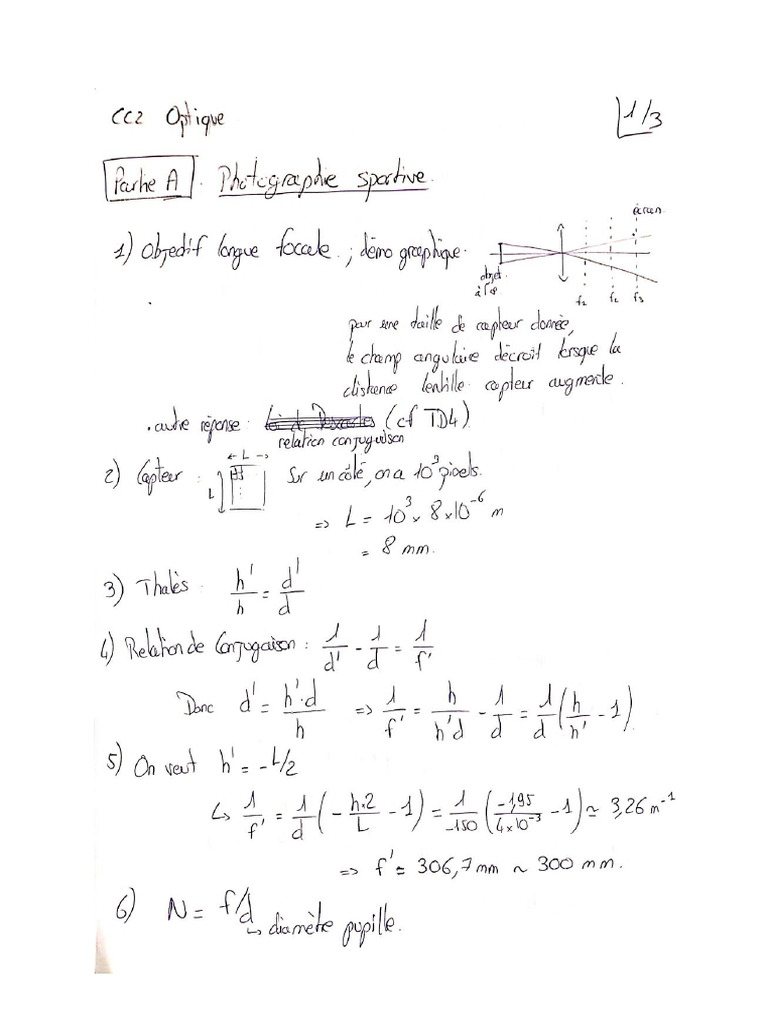 CC2 Optique
1/3
Partie A. Photographie sportive.
1) Objectif longue foccale ; démo graphique.
écran
objet
à l'∞
f₂ f₂ f₃
pour une taille de capteur donnée,
le champ angulaire décroit lorsque la
distance lentille capteur augmente.
. autre réponse : (cf TD4)
relation conjugaison
← L →
2) Capteur : L Sur un côté, on a 10³ pixels.
=> L = 10³ × 8×10⁻⁶ m
= 8 mm.
3) Thalès : h'/h = d'/d
4) Relation de Conjugaison : 1/d' - 1/d = 1/f'
Donc d' = h'·d/h => 1/f' = h/h'd - 1/d = 1/d (h/h' - 1)
5) On veut h' = -L/2
↳ 1/f' = 1/d (- h·2/L - 1) = 1/-150 (-1,95/4×10⁻³ - 1) ≃ 3,26 m⁻¹
=> f' ≃ 306,7 mm ~ 300 mm.
6) N = f/d
↳ diamètre pupille.